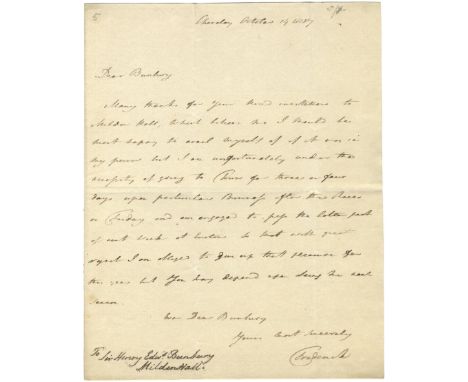 5
Dear Bunbury
Many thanks for your kind invitation to
Milden Hall, which believe me I should be
most happy to avail myself of if it was in
my power but I am unfortunately under the
necessity of going to for three or four
days upon particular Business after the Races
on Friday and am engaged to pass the latter part
of next week at so that with great
regret I am obliged to give up that pleasure for
this year but You may depend upon seeing me next
season.
Ever Dear Bunbury
Yours most sincerely
Frederick
To Sir Henry Edwd Bunbury
MildenHall.